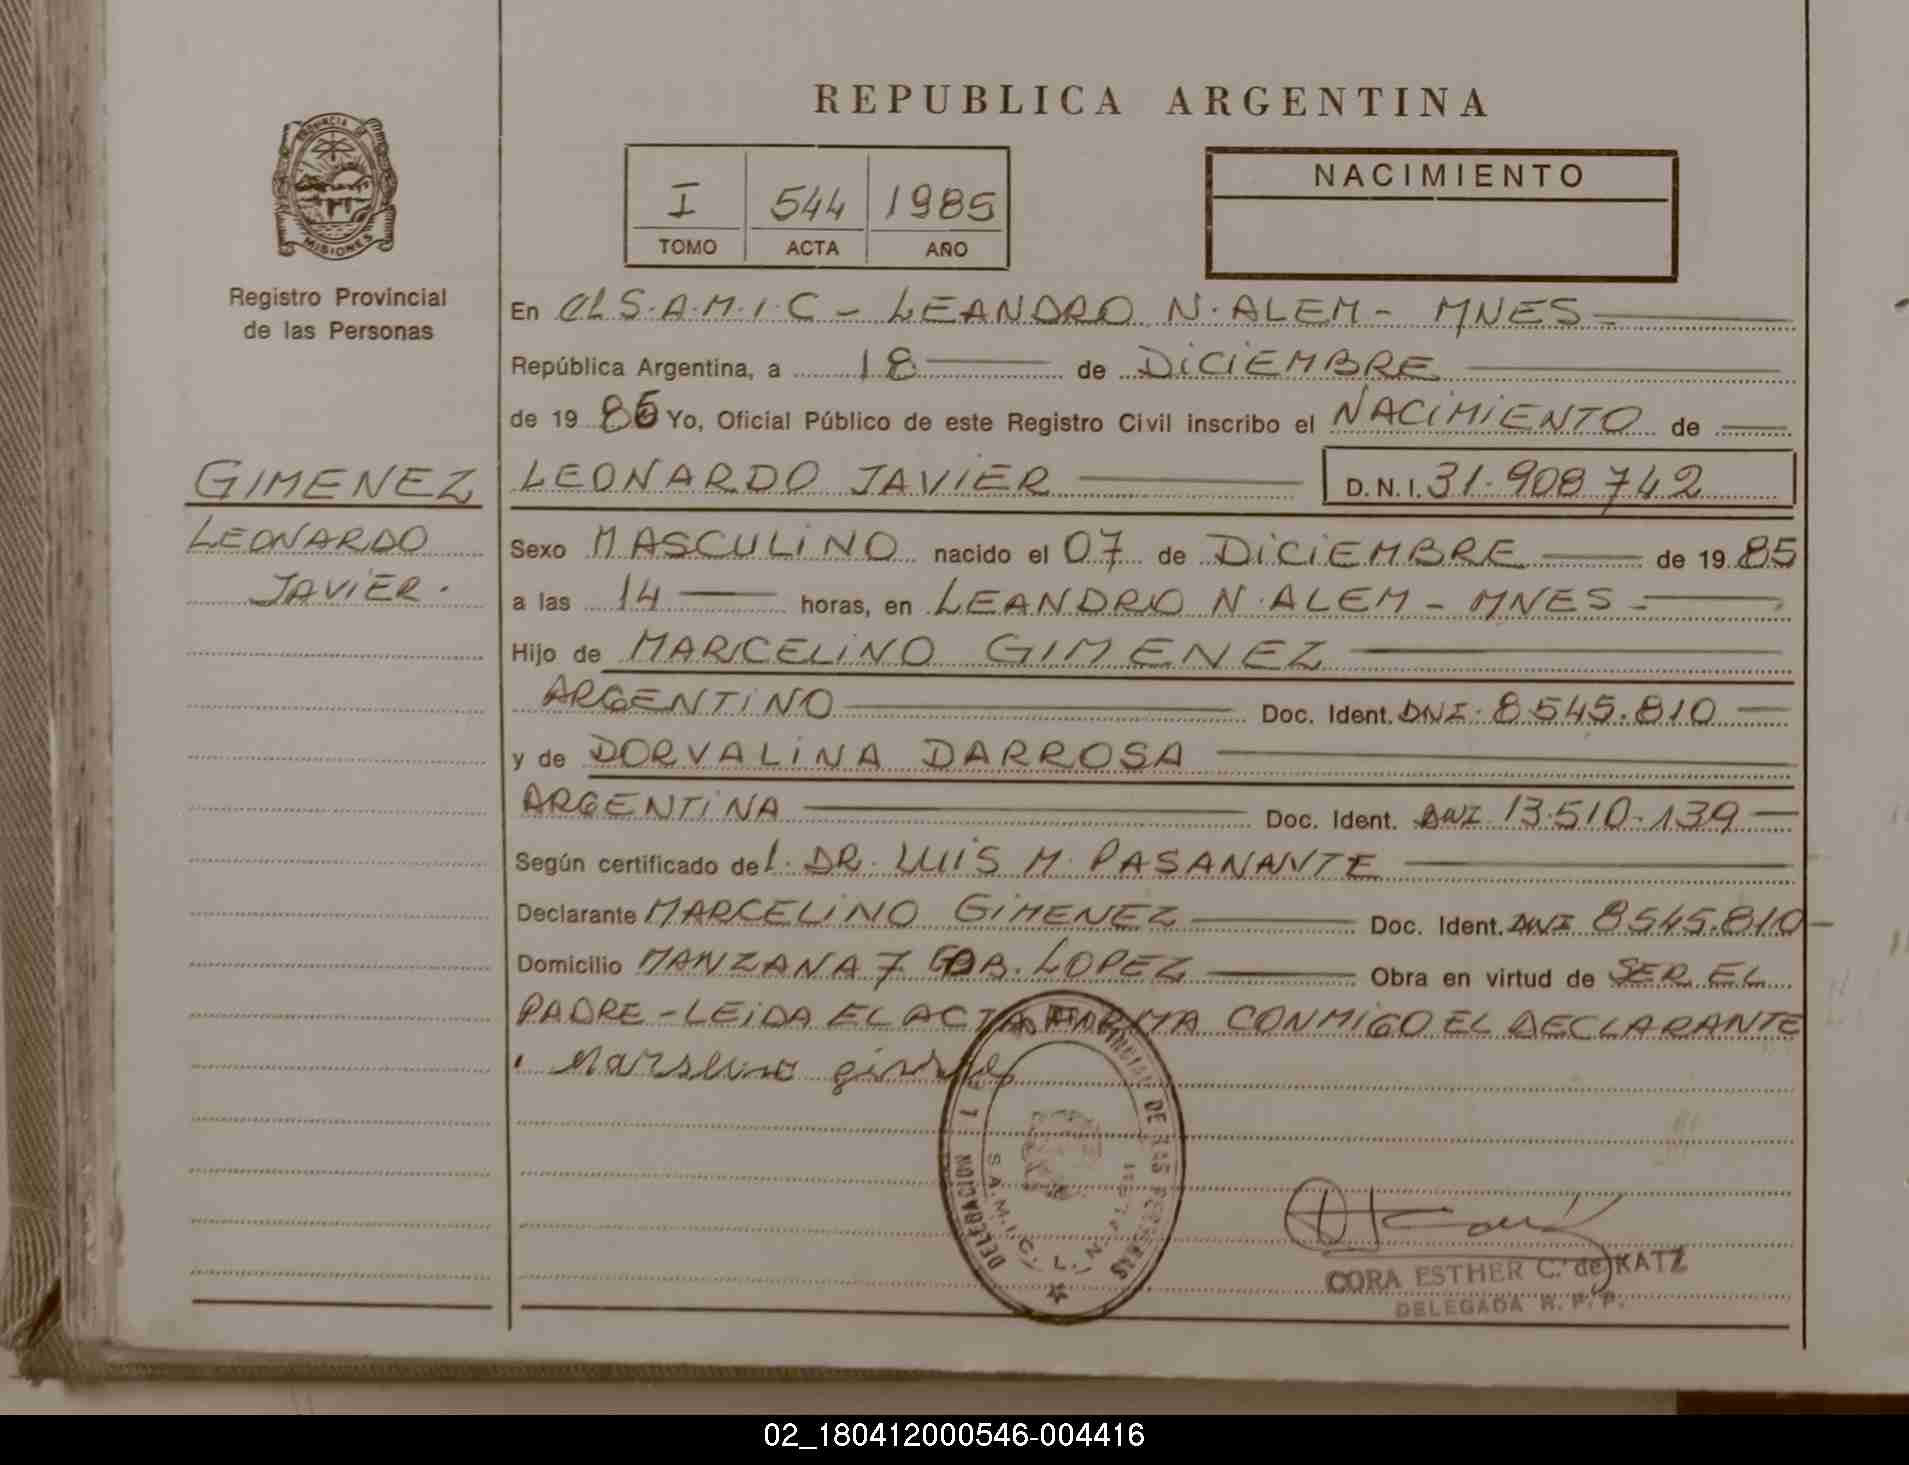 REPUBLICA ARGENTINA
PROVINCIA DE
MISIONES
Registro Provincial
de las Personas
I 544 1985
TOMO ACTA AÑO
NACIMIENTO
En el S.A.M.I.C - LEANDRO N. ALEM - MNES
República Argentina, a 18 de DICIEMBRE
de 1985 Yo, Oficial Público de este Registro Civil inscribo el NACIMIENTO de
GIMENEZ
LEONARDO
JAVIER.
LEONARDO JAVIER D.N.I. 31.908742
Sexo MASCULINO nacido el 07 de DICIEMBRE de 1985
a las 14 horas, en LEANDRO N. ALEM - MNES -
Hijo de MARCELINO GIMENEZ
ARGENTINO Doc. Ident. DNI. 8545.810
y de DORVALINA DARROSA
ARGENTINA Doc. Ident. DNI 13.510.139
Según certificado del. DR. LUIS M. PASANANTE
Declarante MARCELINO GIMENEZ Doc. Ident. DNI 8545.810
Domicilio MANZANA 7 GOB. LOPEZ Obra en virtud de SER EL
PADRE - LEIDA EL ACTA FIRMA CONMIGO EL DECLARANTE
DE LAS PERSONAS
DELEGACION
S.A.M.I.C. L.N.
CORA ESTHER C. de KATZ
DELEGADA R. P. P.
02_180412000546-004416